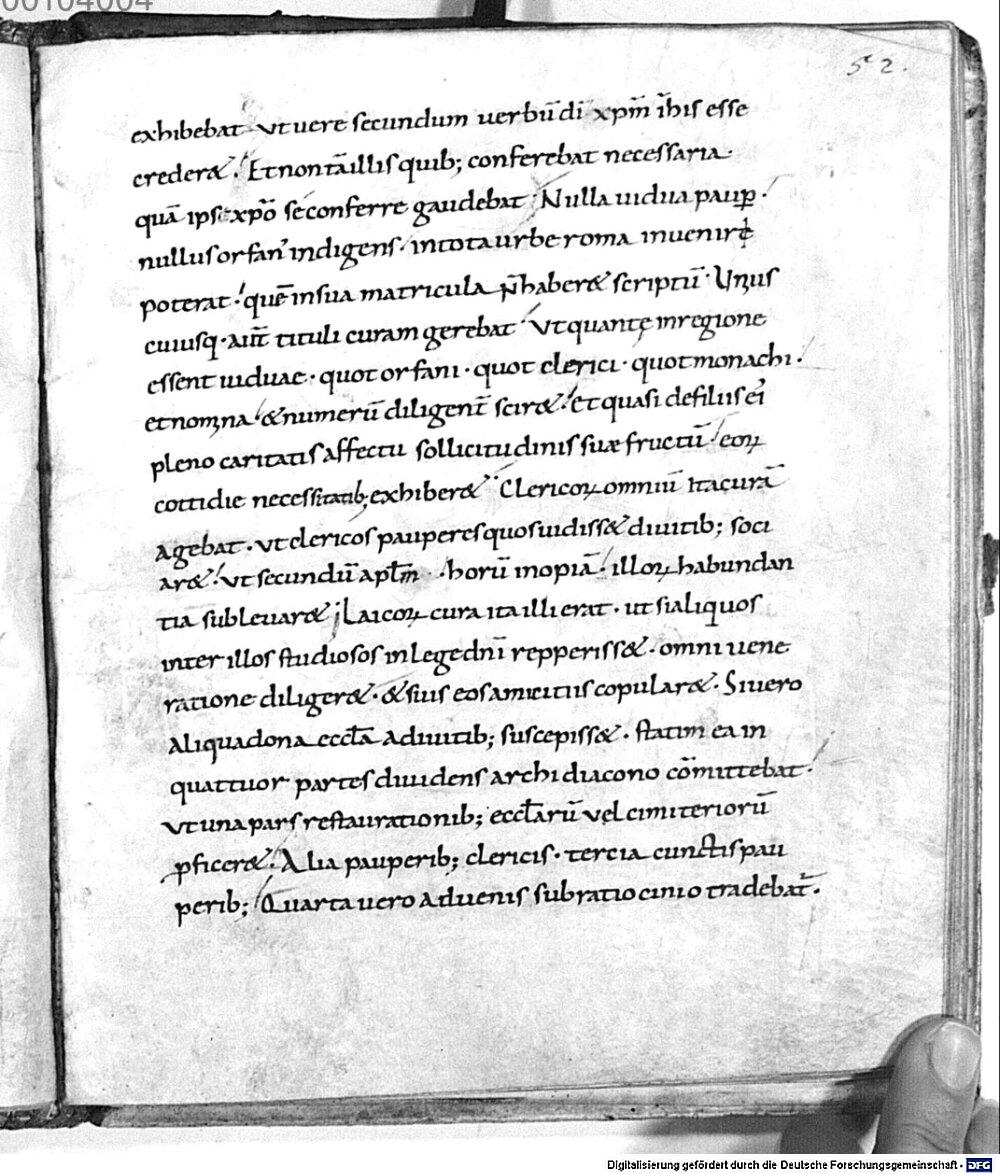 00104004
52.
exhibebat· ut uere secundum uerbū di xpm̄ in his esse
crederet. Et non tā illis quib; conferebat necessaria
quā ipsi xpō se conferre gaudebat· Nulla uidua paup̱·
nullus orfan' indigens· in tota urbe roma inueniri
poterat· quē in sua matricula n̄ haberet scriptū· Unus
cuiusq·aut̄ tituli curam gerebat· Ut quantę in regione
essent uiduae· quot orfani· quot clerici· quot monachi·
et nomina· & numerū diligent̄ sciret· Et quasi de filiis ei'
pleno caritatis affectu sollicitudinis suæ fructū· eoꝝ
cottidie necessitatib; exhiberet· Clericoꝝ omniū ita curā
agebat· ut clericos pauperes quos uidisset diuitib; soci
aret· ut secundū apl̄m· horū inopiā· illoꝝ habundan
tia subleuaret; Laicoꝝ cura ita illi erat· ut si aliquos
inter illos studiosos in lege dn̄i repperisset· omni uene
ratione diligeret· & suis eos amicitiis copularet· Si uero
aliqua dona eccl̄a a diuitib; suscepisset· statim ea in
quattuor partes diuidens archidiacono cōmittebat·
Ut una pars restaurationib; eccl̄arū vel cimiteriorū
ꝓficeret· Alia pauperib; clericis· tercia cunctis pau
perib; Quarta uero aduenis sub ratiocinio tradebat̄·
Digitalisierung gefördert durch die Deutsche Forschungsgemeinschaft - DFG